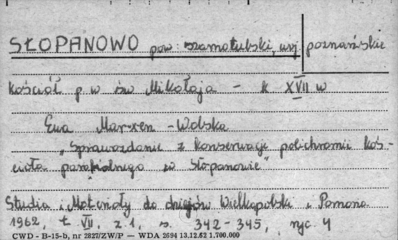 SŁOPANOWO pow. szamotulski, woj. poznańskie
Kościół p.w. św. Mikołaja - k. XVII w
Ewa Marxen-Wolska
"Sprawozdanie z konserwacji polichromii koś-
cioła parafialnego w Słopanowie"
Studia i Materiały do dziejów Wielkopolski i Pomorza
1962, t. VII, z.1, s. 342-345, ryc. 4
CWD - B-15-b, nr 2827/ZW/P — WDA 2694 13.12.62 1.700.000